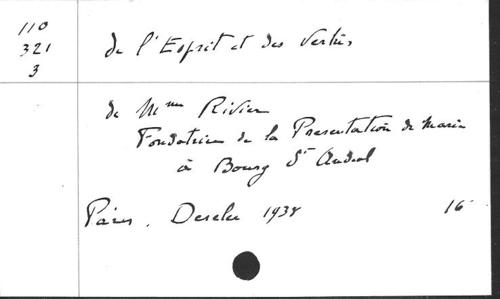 110
321
3
de l'Esprit et des Vertus
de Mme Rivier
Fondatrice de la Presentation de Marie
à Bourg St Andéol
Paris. Desclée 1938 16